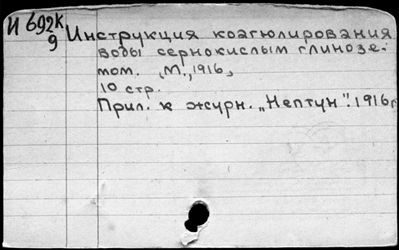 И 692к
9
Инструкция коагюлирования
воды сернокислым глинозе-
мом. М., 1916,
10 стр.
Прил. к журн. „Нептун“. 1916г